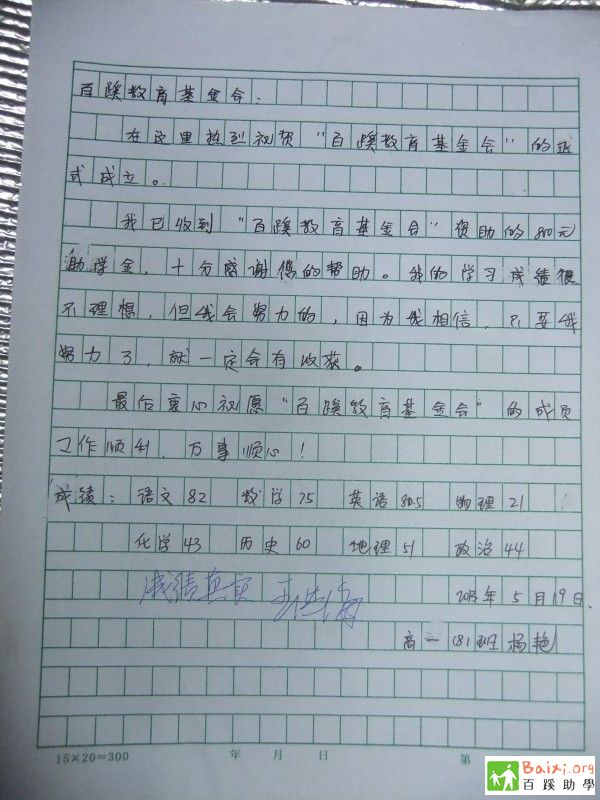 百蹊教育基金会：
在这里热烈祝贺“百蹊教育基金会”的正
式成立。
我已收到“百蹊教育基金会”资助的800元
助学金，十分感谢您的帮助。我的学习成绩很
不理想，但我会努力的，因为我相信，只要我
努力了，就一定会有收获。
最后衷心祝愿“百蹊教育基金会”的成员
工作顺利，万事顺心！
成绩：语文82 数学75 英语80.5 物理21
化学43 历史60 地理51 政治44
成绩真实
2013年5月19日
高一 181班杨艳
15×20=300 年 月 日 第
Baixi.org
百蹊助學